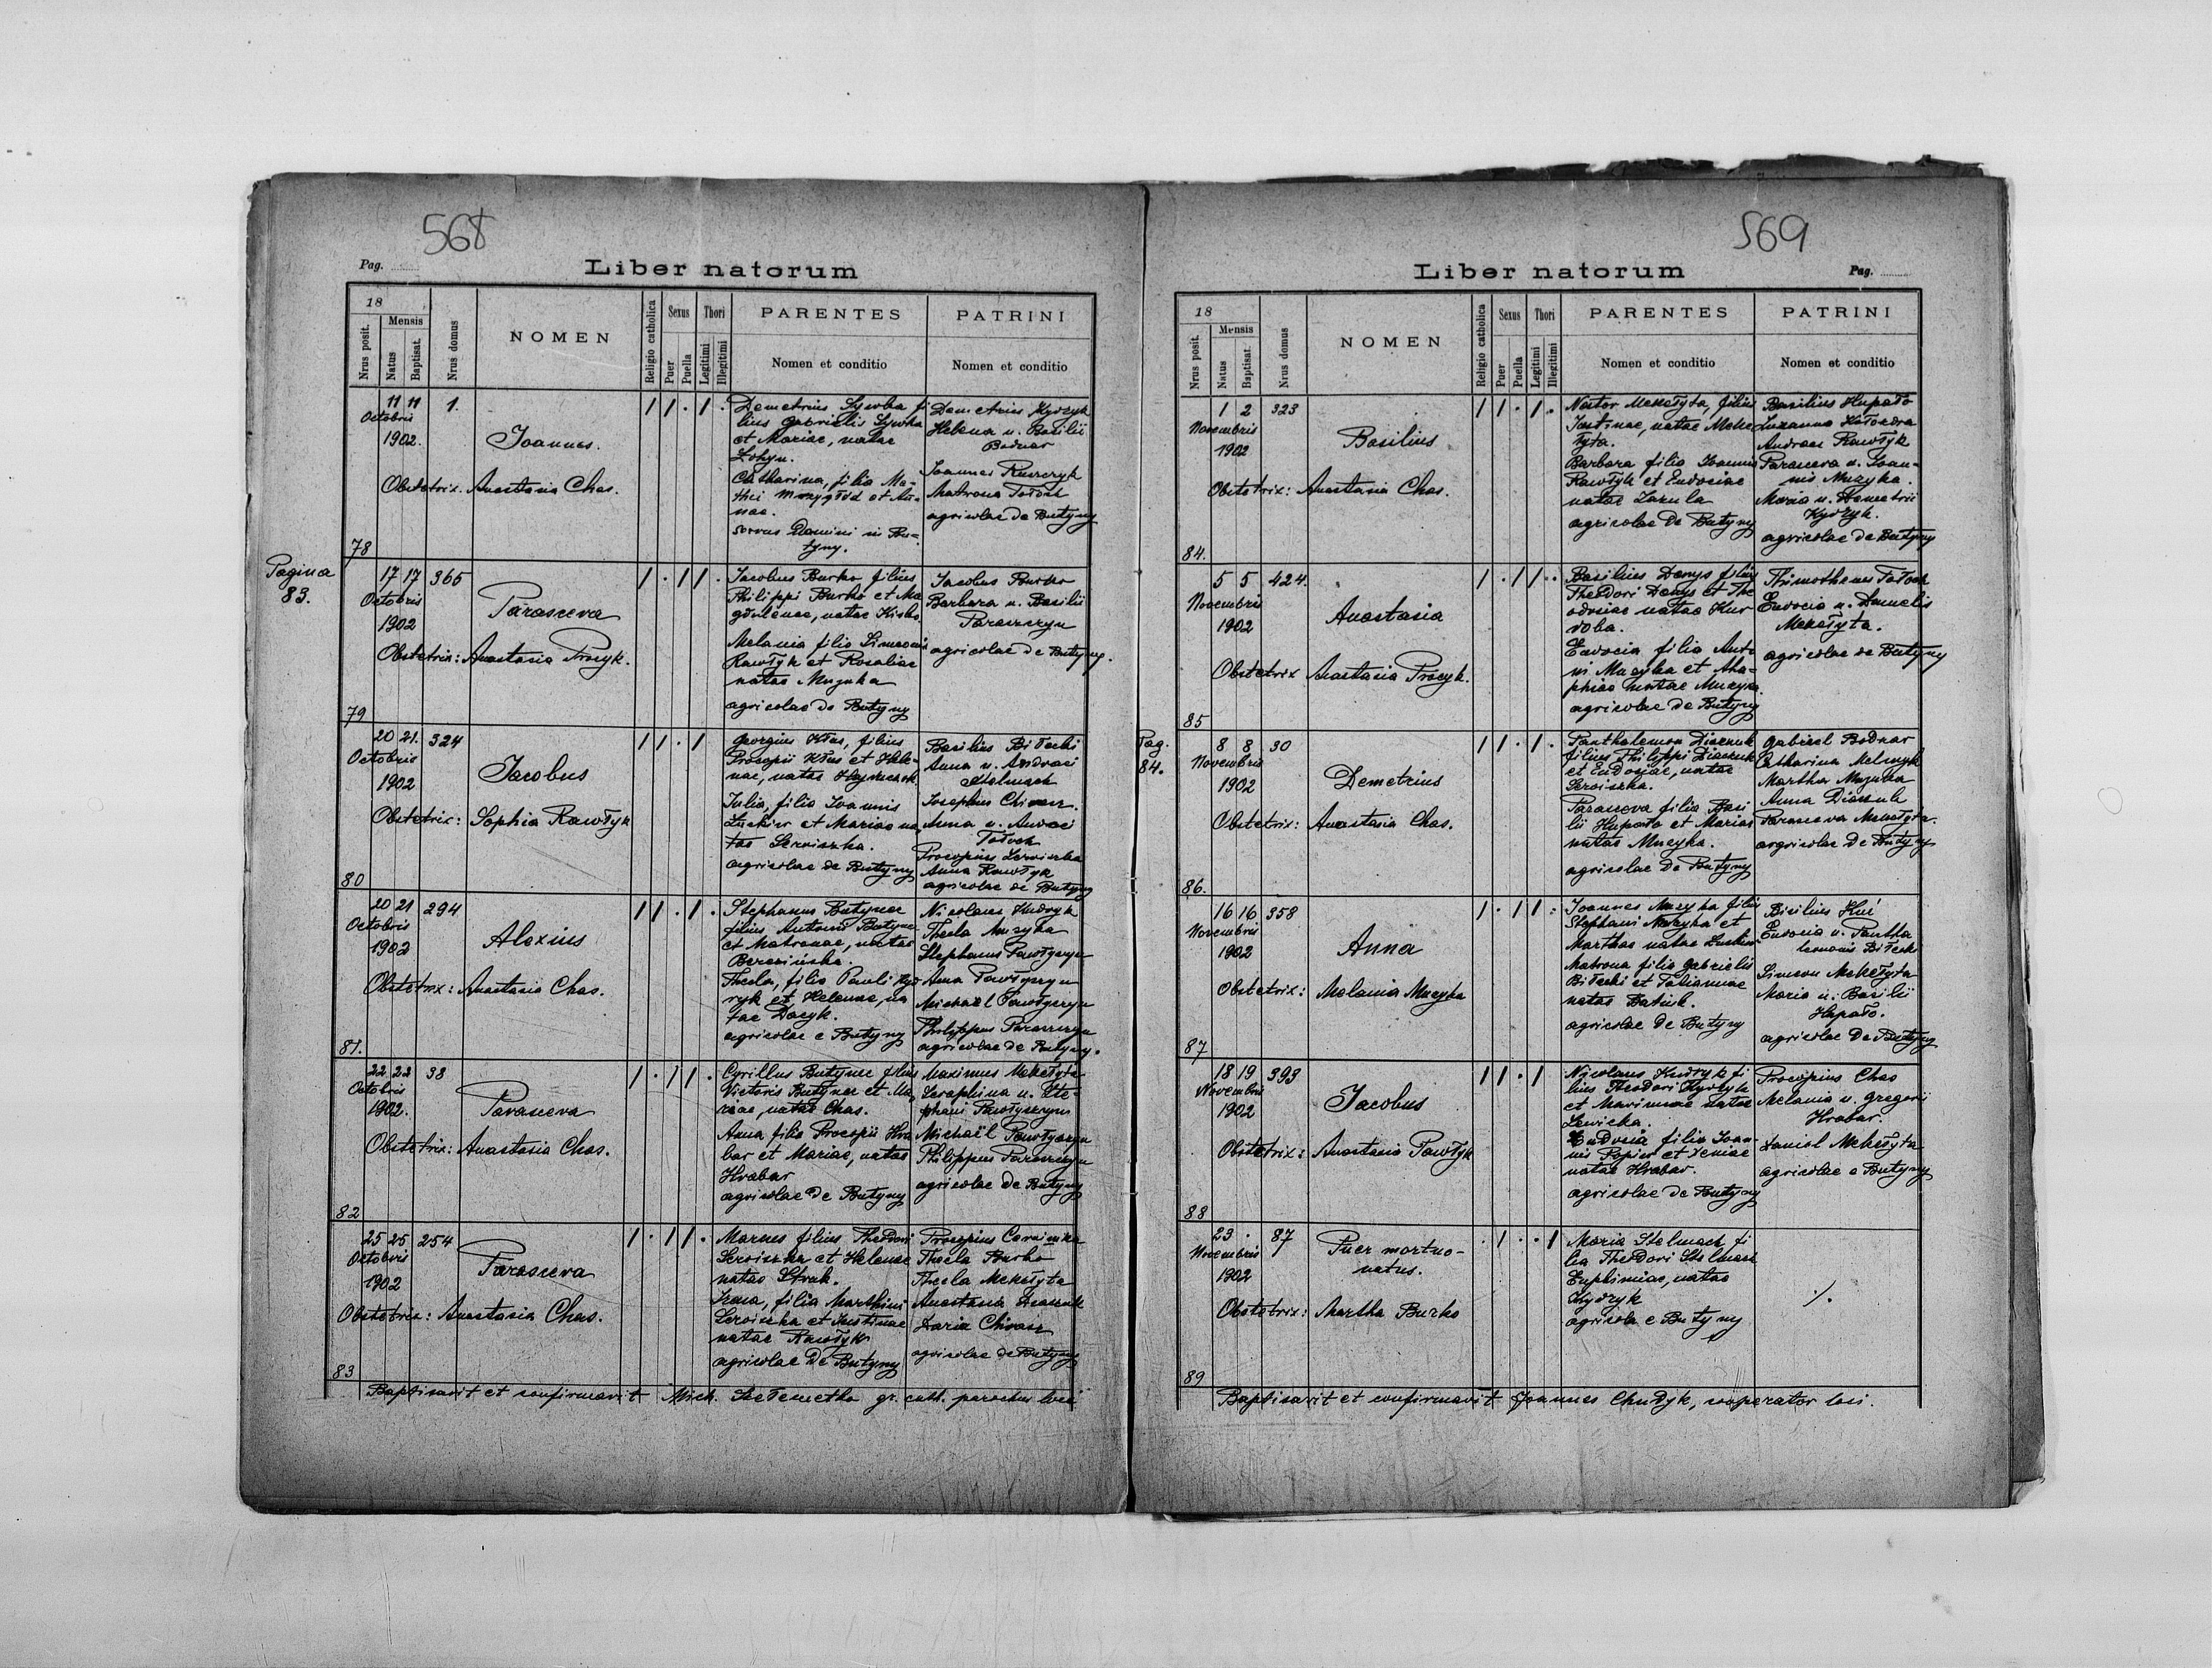 568
Pag.
Liber natorum
18
Nrus posit.
Mensis
Natus
Baptisat.
Nrus domus
NOMEN
Religio catholica
Sexus
Puer
Puella
Thori
Legitimi
Illegitimi
PARENTES
Nomen et conditio
PATRINI
Nomen et conditio
78
11 11 1.
Octobris
1902.
Joannes.
Obstetrix. Anastasia Chas.
Demetrius Sywka fi
lius Gabrielis Sywka
et Mariae, natae
Catharina, filia Ma-
thei et An-
nae.
servus Domini in Bu-
tyny.
Demetrius Kydryk
Helena u. Basilii
Bodnar
Joannes
Matrona Tołoch
agricolae de Butyny
Pagina
83.
79
17 17 365
Octobris
1902
Parasceva
Obstetrix: Anastasia Procyk.
Jacobus Burko filius
Philippi Burko et Ma
gdalenae, natae
Melania filia Simeonis
Pawłyk et Rosaliae
natae Muzyka
agricolae de Butyny
Jacobus Burko
Barbara u. Basilii
Paraszczyn
agricolae de Butyny.
80
20 21. 324
Octobris
1902
Jacobus
Obstetrix: Sophia Pawłyk
Georgius Kłus, filius
Procopii Kłus et Hele-
nae, natae
Julia, filia Joannis
Luckiw et Mariae na
tae Seroiszka.
agricolae de Butyny
Basilius Biłecki
Anna u. Andreae
Stelmach
Josephus
Anna u. Andreae
Tołoch
Procopius Seroiszka
Anna Pawłyk
agricolae de Butyny
81.
20 21 294
Octobris
1902
Alexius
Obstetrix: Anastasia Chas.
Stephanus Butynec
filius Antonii Butynec
et Matronae, natae
Berezińska.
Thecla, filia Pauli Kyd
ryk et Helenae, na
tae Dacyk.
agricolae e Butyny
Nicolaus Kudryk
Thecla Muzyka
Stephanus Pawłyszyn
Anna Pawłyszyn
Michaël Pawłyszyn
Philippus Paraszczyn
agricolae de Butyny.
82
22 23 38
Octobris
1902.
Parasceva
Obstetrix: Anastasia Chas.
Cyrillus Butynec filius
Victoris Butynec et Ma
riae, natae Chas.
Anna filia Procopii Hra
bar et Mariae, natae
Hrabar
agricolae de Butyny
Maximus Mekełyta
Seraphina u. Ste-
phani Pawłyszyn
Michaël Pawłyszyn
Philippus Paraszczyn
agricolae de Butyny
83
25 25 254
Octobris
1902
Parasceva
Obstetrix: Anastasia Chas.
Marcus filius Theodori
Seroiszka et Helenae
natae Struk.
Irena, filia Marthini
Seroiszka et Justinae
natae Pawłyk
agricolae de Butyny
Procopius
Thecla Burko
Thecla Mekełyta
Anastasia Diaczuk
Daria
agricolae de Butyny
Baptisavit et confirmavit Mich. gr. cath. parochus loci
569
Liber natorum
Pag.
18
Nrus posit.
Mensis
Natus
Baptisat.
Nrus domus
NOMEN
Religio catholica
Sexus
Puer
Puella
Thori
Legitimi
Illegitimi
PARENTES
Nomen et conditio
PATRINI
Nomen et conditio
84.
1 2 323
Novembris
1902
Basilius
Obstetrix: Anastasia Chas.
Nestor Mekełyta, filius
Justinae, natae Meke
łyta.
Barbara filia Joannis
Pawłyk et Eudociae
natae Zazula
agricolae de Butyny
Basilius Hupało
Andreas Pawłyk
Parasceva u. Joan-
nis Muzyka.
Maria u. Demetrii
Kydryk.
agricolae de Butyny
85
5 5 424.
Novembris
1902
Anastasia
Obstetrix Anastasia Procyk.
Basilius Denys filius
Theodori Denys et The
odosiae natae Kur
doba.
Eudocia filia Anto
ni Muzyka et Aha-
phiae natae Muzyka.
agricolae de Butyny
Thimotheus Tołoch
Eudocia u. Danielis
Mekełyta.
agricolae de Butyny
Pag.
84.
86.
8 8 30
Novembris
1902
Demetrius
Obstetrix: Anastasia Chas.
Panthalemon Diaczuk
filius Philippi Diaczuk
et Eudociae, natae
Seroiszka.
Parasceva filia Basi
lii Hupało et Mariae
natae Muzyka.
agricolae de Butyny
Gabriel Bodnar
Catharina Melnyk
Martha Muzyka
Anna Diaczuk
Parasceva Mekełyta.
agricolae de Butyny
87
16 16 358
Novembris
1902
Anna
Obstetrix: Melania Muzyka
Joannes Muzyka filius
Stephani Muzyka et
Marthae natae Luckiw
Matrona filia Gabrielis
Biłecki et Tatiannae
natae Batiuk.
agricolae de Butyny
Basilius
Eudocia u. Pantha
lemonis Biłecki
Simeon Mekełyta
Maria u. Basilii
Hupało.
agricolae de Butyny
88
18 19 393
Novembris
1902
Jacobus
Obstetrix: Anastasia Pawłyk
Nicolaus Kudryk fi
lius Theodori Kydryk
et Marinnae natae
Lewicka.
Eudocia filia Joan-
nis Popiw et Xeniae
natae Hrabar.
agricolae de Butyny
Procopius Chas
Melania u. Gregorii
Hrabar.
Daniel Mekełyta
agricolae e Butyny
89
23 . 87
Novembris
1902
Puer mortuo-
natus.
Obstetrix: Martha Burko
Maria Stelmach fi
lia Theodori Stelmach
Euphimiae, natae
Kydryk
agricola e Butyny
·/.
Baptisavit et confirmavit Joannes Chudyk, cooperator loci.